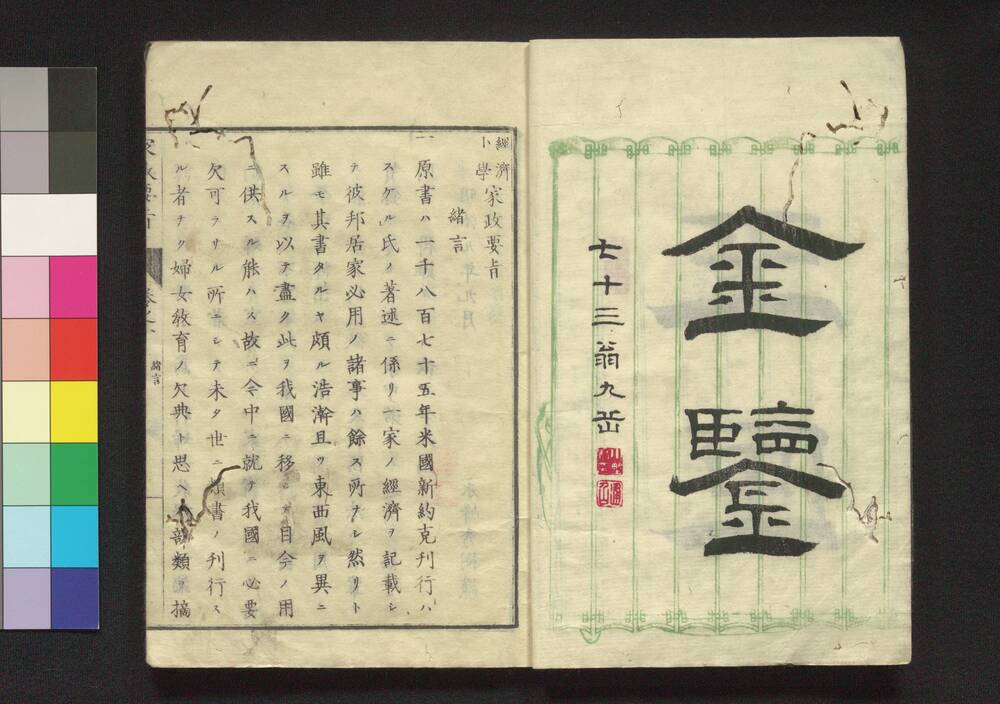 金鑒
七十三翁九岳
經濟小學家政要旨
緒言
一原書ハ一千八百七十五年米國新約克刊行ハ
スケル氏ノ著述ニ係リ一家ノ經濟ヲ記載シ
テ彼邦居家必用ノ諸事ハ餘ス所ナシ然リト
雖モ其書タルヤ頗ル浩澣且ツ東西風ヲ異ニ
スルヲ以テ盡ク此ヲ我國ニ移シテ目今ノ用
ニ供スル能ハス故ニ今中ニ就テ我國ニ必要
欠可ラサル所ニシテ未タ世ニ類書ノ刊行ス
ル者ナク婦女敎育ノ欠典ト思ヘル部類ヲ摘
緒言